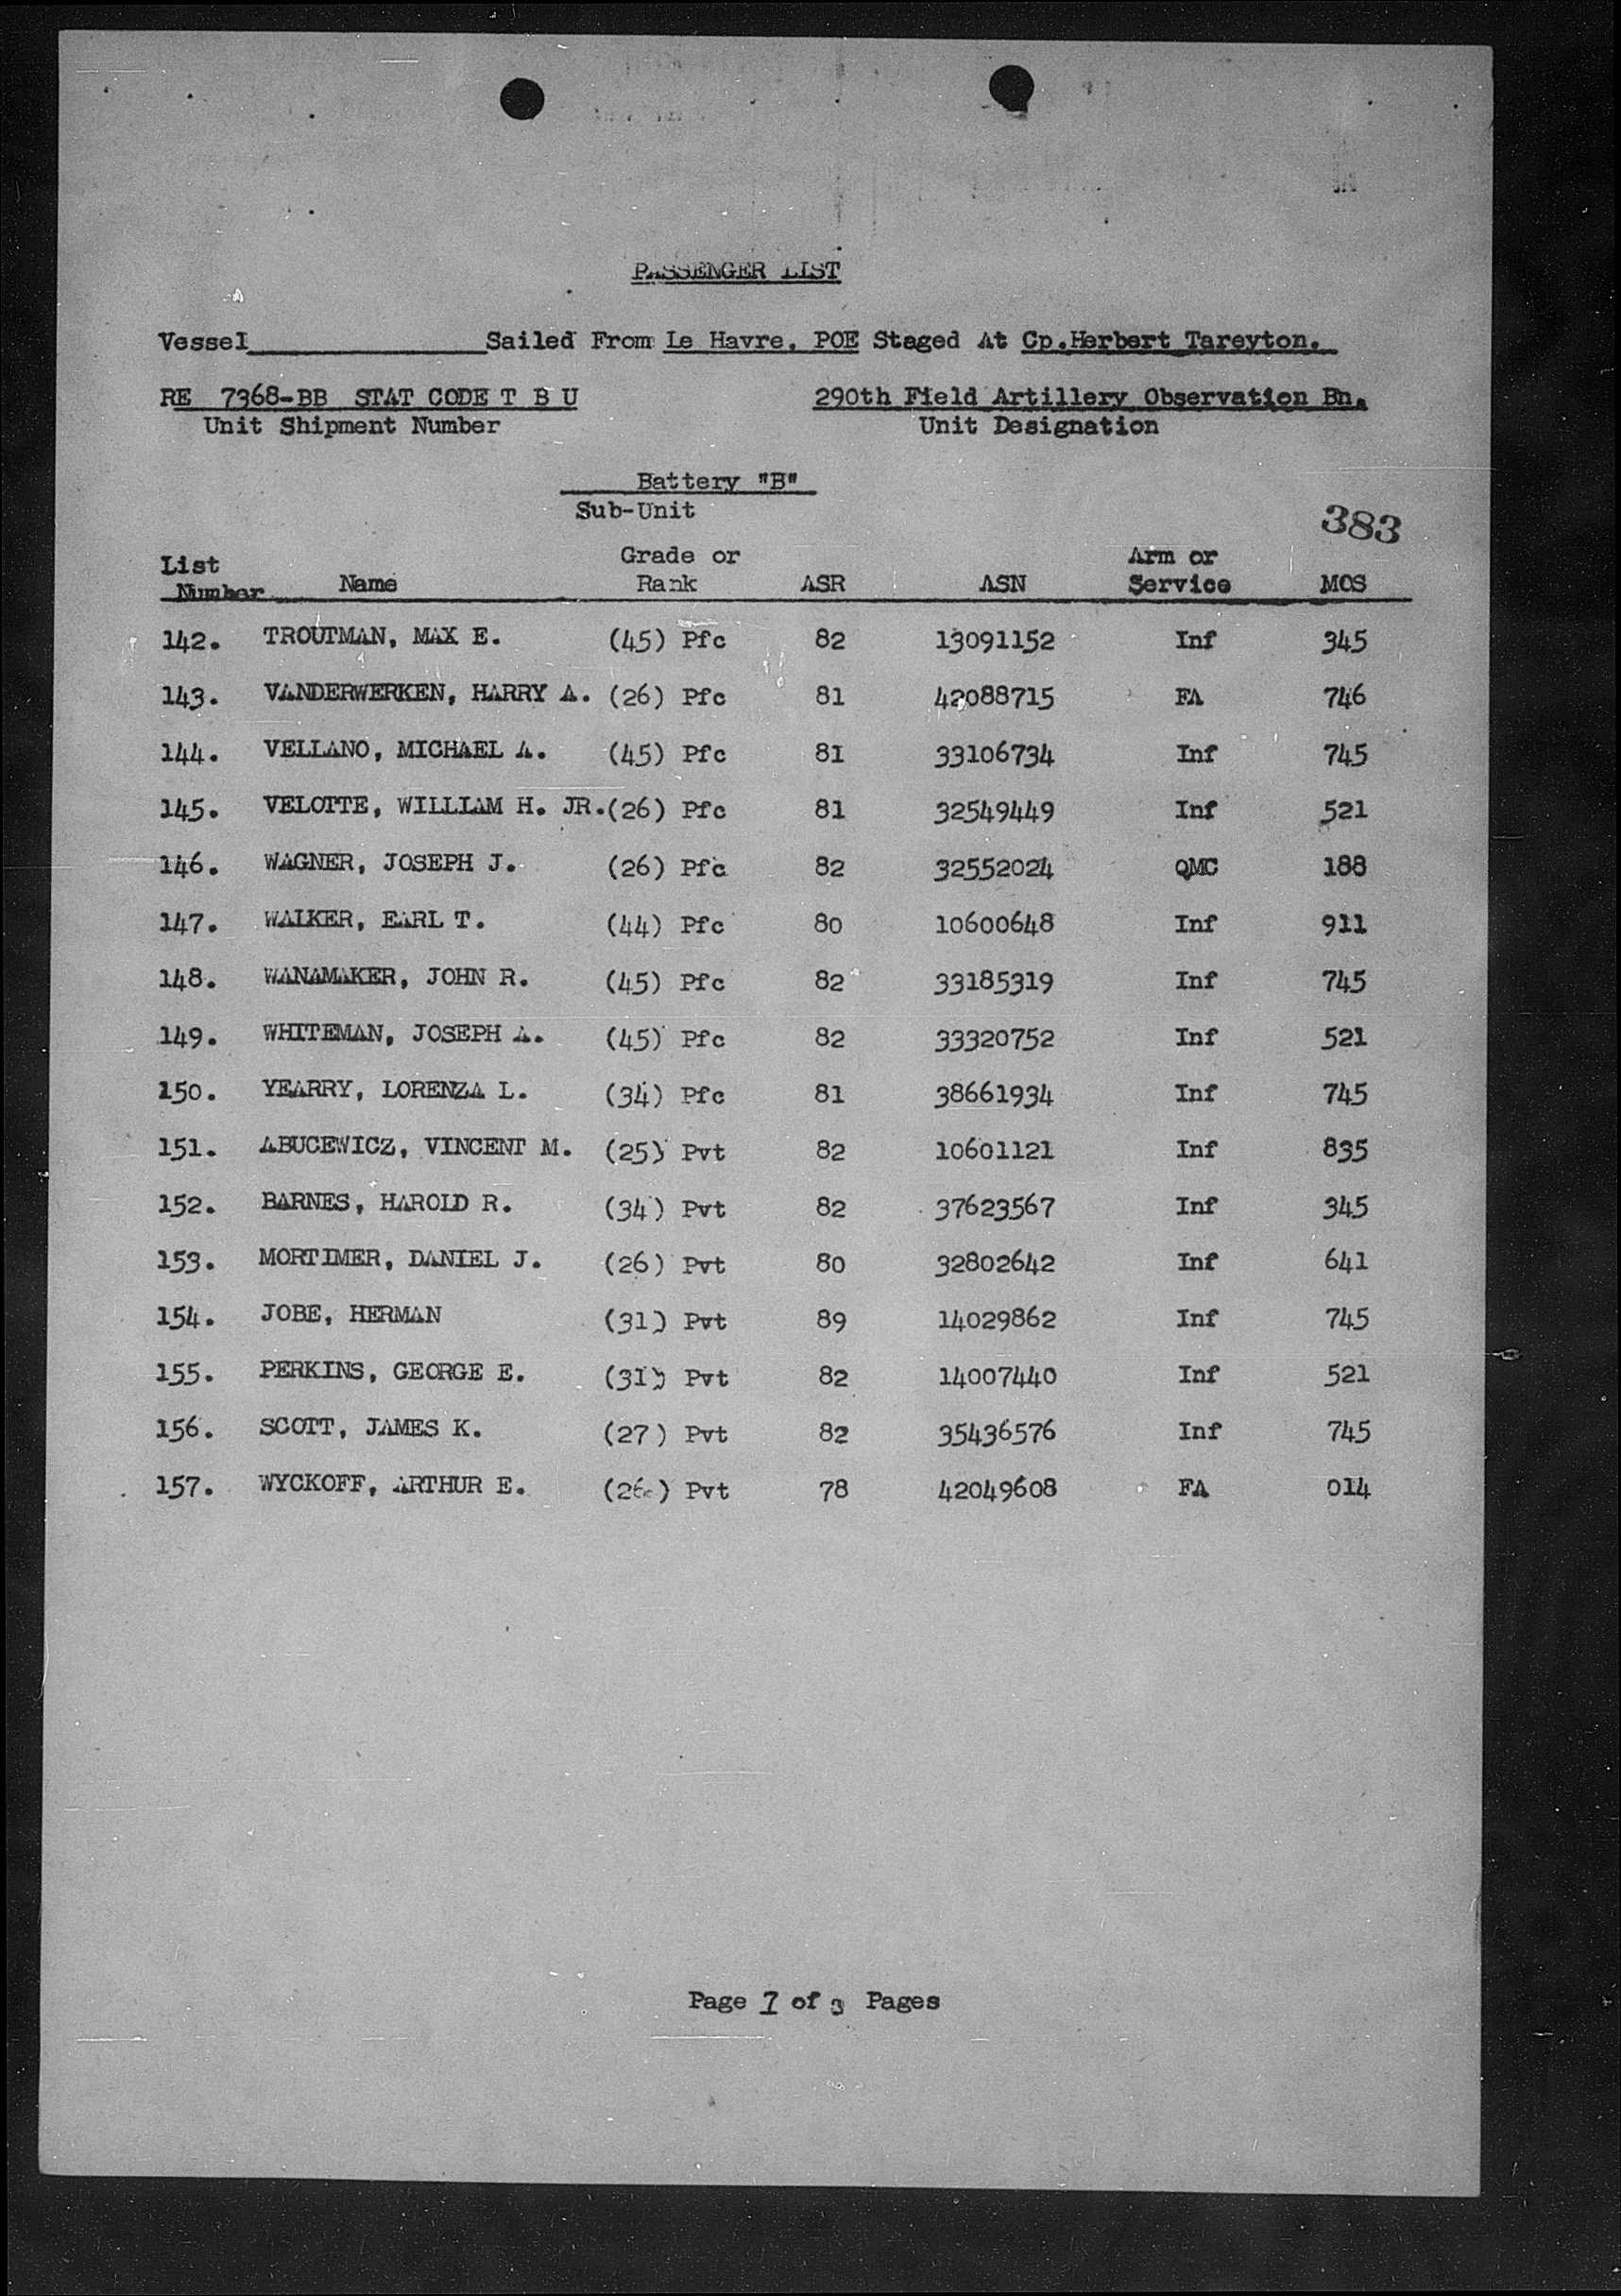 PASSENGER LIST
Vessel____________Sailed From Le Havre, POE Staged At Cp.Herbert Tareyton.
RE 7368-BB STAT CODE T B U 290th Field Artillery Observation Bn.
Unit Shipment Number Unit Designation
Battery "B"
Sub-Unit
383
List Number Name Grade or Rank ASR ASN Arm or Service MOS
142. TROUTMAN, MAX E. (45) Pfc 82 13091152 Inf 345
143. VANDERWERKEN, HARRY A. (26) Pfc 81 42088715 FA 746
144. VELLANO, MICHAEL A. (45) Pfc 81 33106734 Inf 745
145. VELOTTE, WILLIAM H. JR.(26) Pfc 81 32549449 Inf 521
146. WAGNER, JOSEPH J. (26) Pfc 82 32552024 QMC 188
147. WALKER, EARL T. (44) Pfc 80 10600648 Inf 911
148. WANAMAKER, JOHN R. (45) Pfc 82 33185319 Inf 745
149. WHITEMAN, JOSEPH A. (45) Pfc 82 33320752 Inf 521
150. YEARRY, LORENZA L. (34) Pfc 81 38661934 Inf 745
151. ABUCEWICZ, VINCENT M. (25) Pvt 82 10601121 Inf 835
152. BARNES, HAROLD R. (34) Pvt 82 37623567 Inf 345
153. MORTIMER, DANIEL J. (26) Pvt 80 32802642 Inf 641
154. JOBE, HERMAN (31) Pvt 89 14029862 Inf 745
155. PERKINS, GEORGE E. (31) Pvt 82 14007440 Inf 521
156. SCOTT, JAMES K. (27) Pvt 82 35436576 Inf 745
157. WYCKOFF, ARTHUR E. (26) Pvt 78 42049608 FA 014
Page 7 of Pages